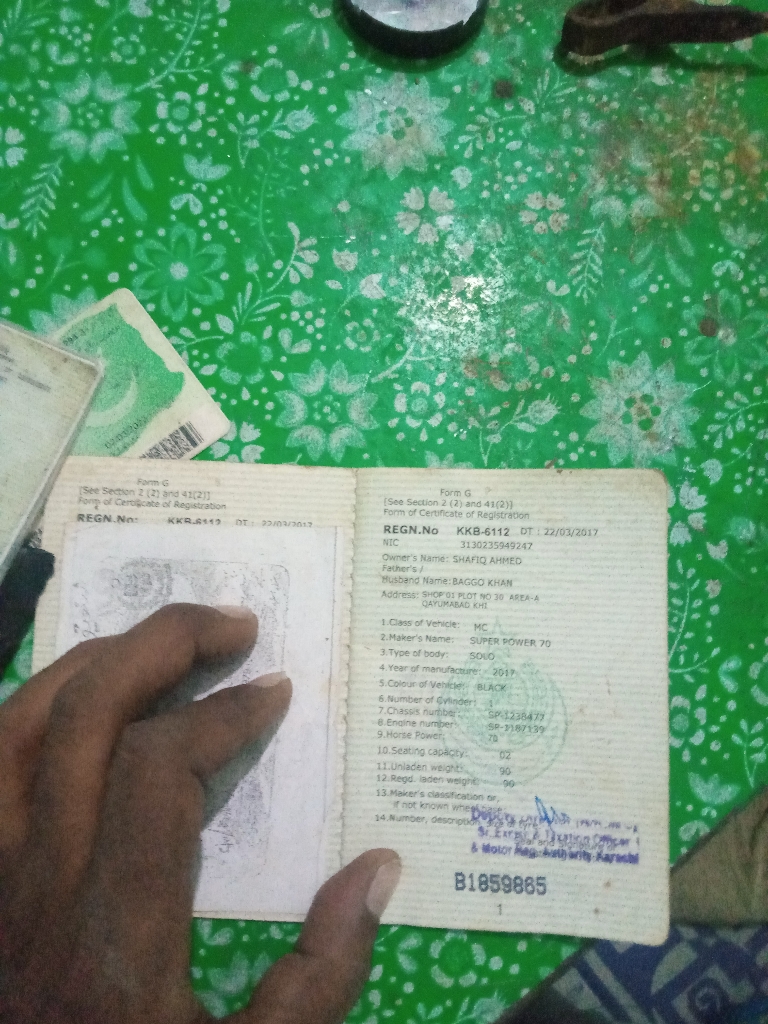 Form G
[See Section 2 (2) and 41(2)]
Form of Certificate of Registration
REGN.No: KKB-6112 DT : 22/03/2017
Form G
[See Section 2 (2) and 41(2)]
Form of Certificate of Registration
REGN.No KKB-6112 DT : 22/03/2017
NIC 3130235949247
Owner's Name: SHAFIQ AHMED
Father's /
Husband Name: BAGGO KHAN
Address: SHOP 01 PLOT NO 30 AREA-A
QAYUMABAD KHI
1.Class of Vehicle: MC
2.Maker's Name: SUPER POWER 70
3.Type of body: SOLO
4.Year of manufacture: 2017
5.Colour of Vehicle: BLACK
6.Number of Cylinder: 1
7.Chassis number: SP-1238477
8.Engine number: SP-1187139
9.Horse Power: 70
10.Seating capacity: 02
11.Unladen weight: 90
12.Regd. laden weight: 90
13.Maker's classification or,
if not known wheel base:
14.Number, description,
& Motor Reg. Authority Karachi
B1859865
1